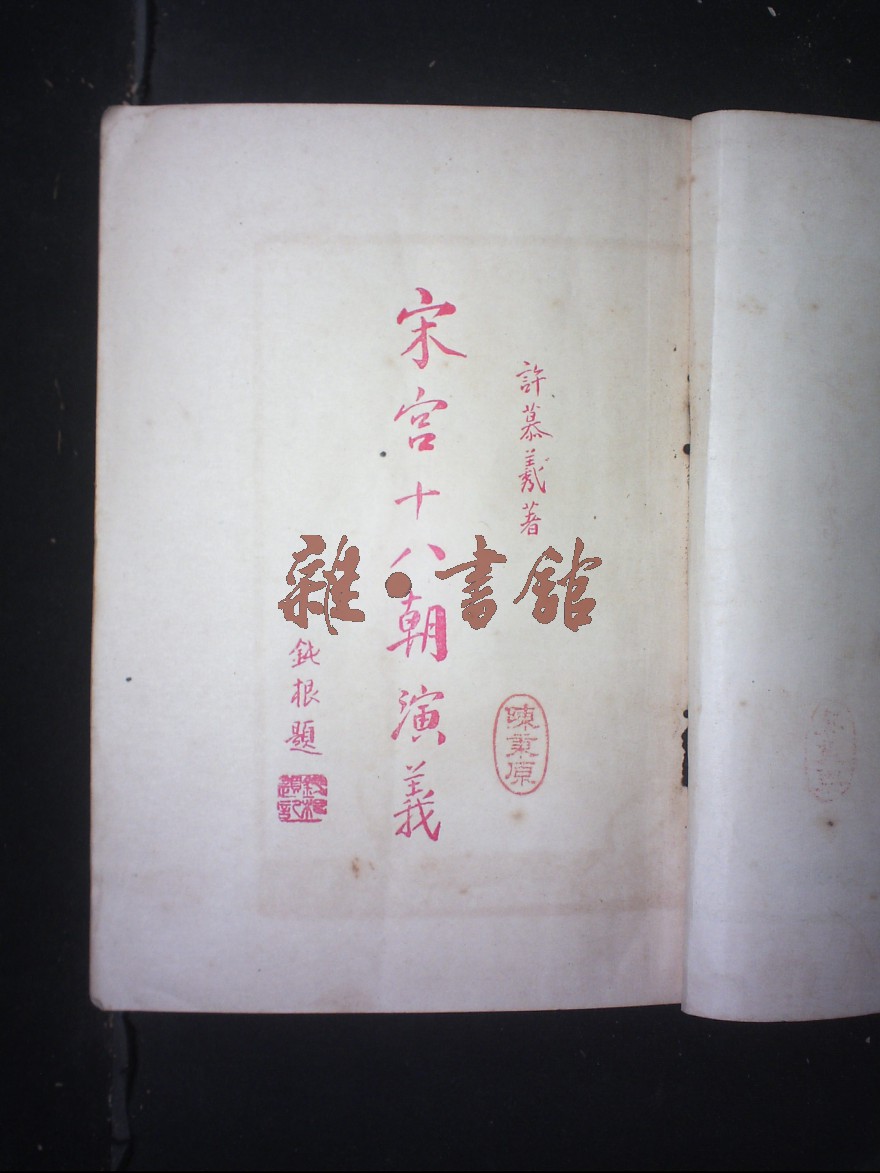 許慕羲著
宋宮十八朝演義
鈍根題
陳秉原
雜·書館